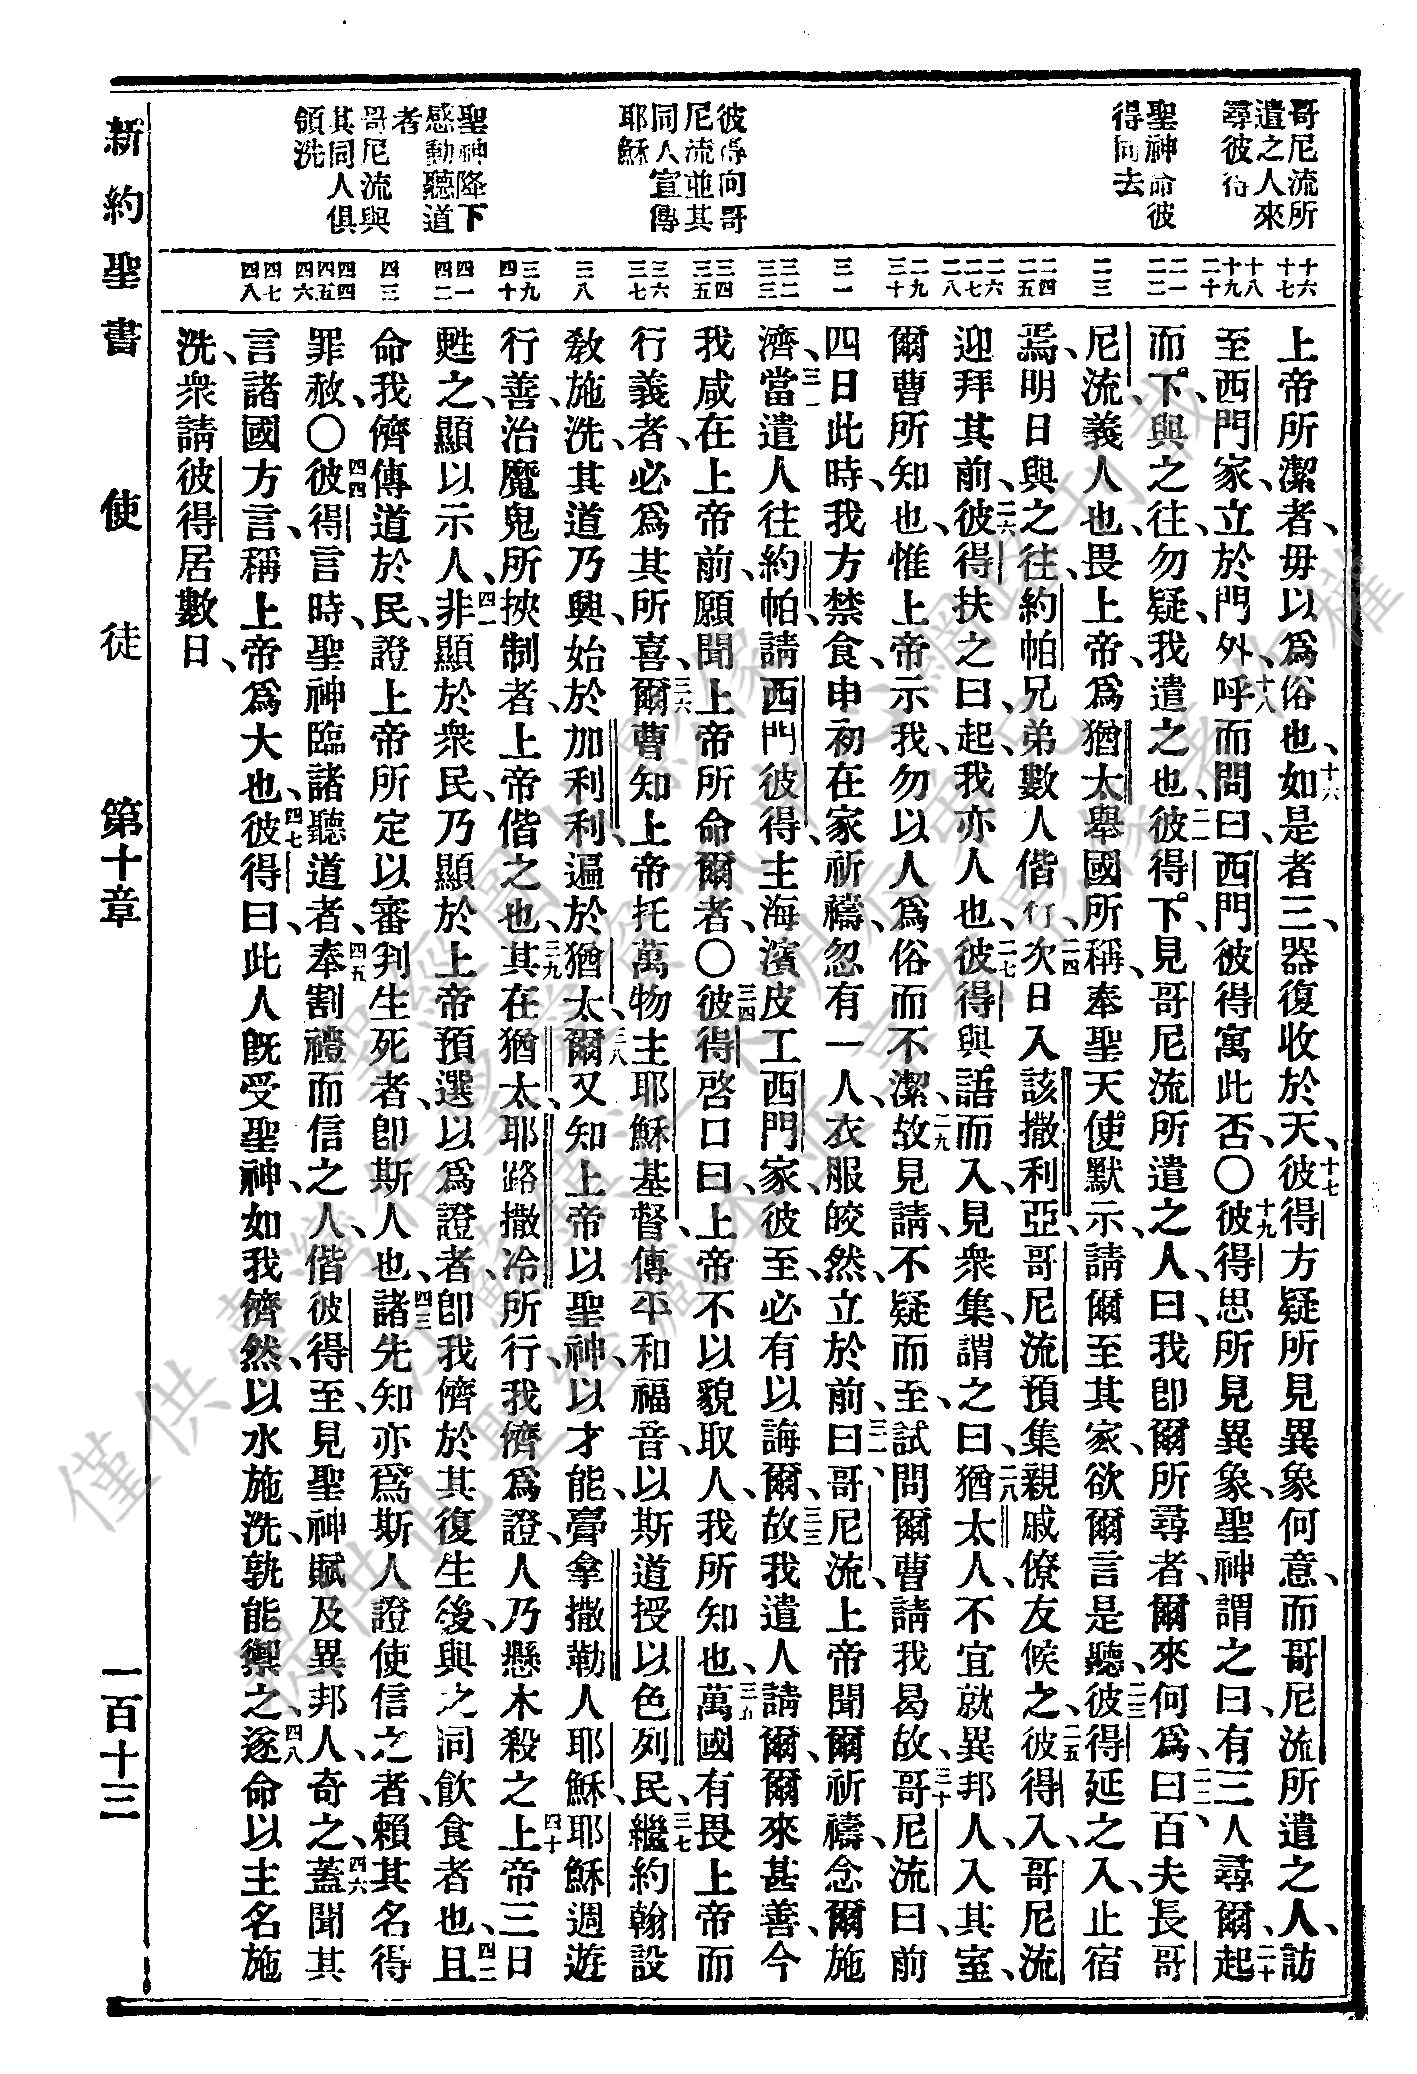 哥尼流所
遣之人來
尋彼得
聖神命彼
得同去
彼得向哥
尼流並其
同人宣傳
耶穌
聖神降下
感動聽道
者
哥尼流與
其同人俱
領洗
十六
十七
十八
十九
二十
二一
二二
二三
二四
二五
二六
二七
二八
二九
三十
三一
三二
三三
三四
三五
三六
三七
三八
三九
四十
四一
四二
四三
四四
四五
四六
四七
四八
上帝所潔者、毋以爲俗也、十六如是者三、器復收於天、十七彼得方疑所見異象何意、而哥尼流所遣之人、訪
至西門家、立於門外、十八呼而問曰、西門彼得寓此否、〇十九彼得思所見異象、聖神謂之曰、有三人尋爾、二十起
而下、與之往、勿疑、我遣之也、二一彼得下、見哥尼流所遣之人、曰、我卽爾所尋者、爾來何爲、二二曰、百夫長哥
尼流、義人也、畏上帝、爲猶太舉國所稱、奉聖天使默示、請爾至其家、欲爾言是聽、二三彼得延之入、止宿
焉、明日與之往、約帕兄弟數人偕行、二四次日入該撒利亞、哥尼流預集親戚僚友候之、二五彼得入、哥尼流
迎拜其前、二六彼得扶之曰、起、我亦人也、二七彼得與語而入、見衆集、謂之曰、二八猶太人、不宜就異邦人、入其室、
爾曹所知也、惟上帝示我、勿以人爲俗而不潔、二九故見請、不疑而至、試問爾曹請我曷故、三十哥尼流曰、前
四日此時、我方禁食、申初在家祈禱、忽有一人、衣服皎然、立於前、三一曰、哥尼流、上帝聞爾祈禱、念爾施
濟、三二當遣人往約帕、請西門彼得、主海濱皮工西門家、彼至、必有以誨爾、三三故我遣人請爾、爾來甚善、今
我咸在上帝前、願聞上帝所命爾者、〇三四彼得啓口曰、上帝不以貌取人、我所知也、三五萬國有畏上帝而
行義者、必爲其所喜、三六爾曹知上帝托萬物主耶穌基督、傳平和福音、以斯道授以色列民、三七繼約翰設
敎施洗、其道乃興、始於加利利、遍於猶太、三八爾又知上帝以聖神、以才能、膏拿撒勒人耶穌、耶穌週遊
行善、治魔鬼所挾制者、上帝偕之也、三九其在猶太、耶路撒冷所行、我儕爲證、人乃懸木殺之、四十上帝三日
甦之、顯以示人、四一非顯於衆民、乃顯於上帝預選以爲證者、卽我儕於其復生後、與之同飲食者也、四二且
命我儕傳道於民、證上帝所定以審判生死者、卽斯人也、四三諸先知亦爲斯人證、使信之者、賴其名得
罪赦、〇四四彼得言時、聖神臨諸聽道者、四五奉割禮而信之人、偕彼得至、見聖神賦及異邦人、奇之、四六蓋聞其
言諸國方言、稱上帝爲大也、四七彼得曰、此人旣受聖神、如我儕然、以水施洗、孰能禦之、四八遂命以主名施
洗、衆請彼得居數日、
新約聖書 使徒 第十章 一百十三
僅供